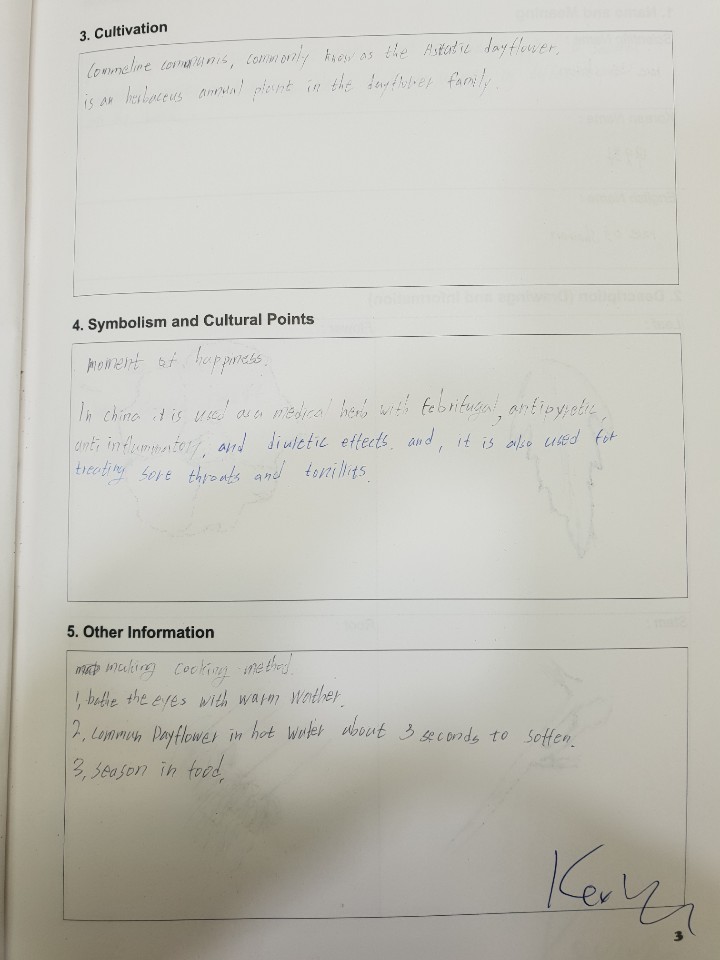 3. Cultivation
Commeline communis, commonly know as the Asiatic dayflower.
is an herbaceus annual plant in the dayflower family.
4. Symbolism and Cultural Points
moment of happiness.
In china it is used as a medical herb with febrifugal, antipyretic,
anti inflammatory, and diuretic effects. and, it is also used for
treating sore throats and tonillits.
5. Other Information
making cooking method.
1, bathe the eyes with warm Wather.
2, Commun Dayflower in hot water about 3 seconds to soften.
3, season in food,
3